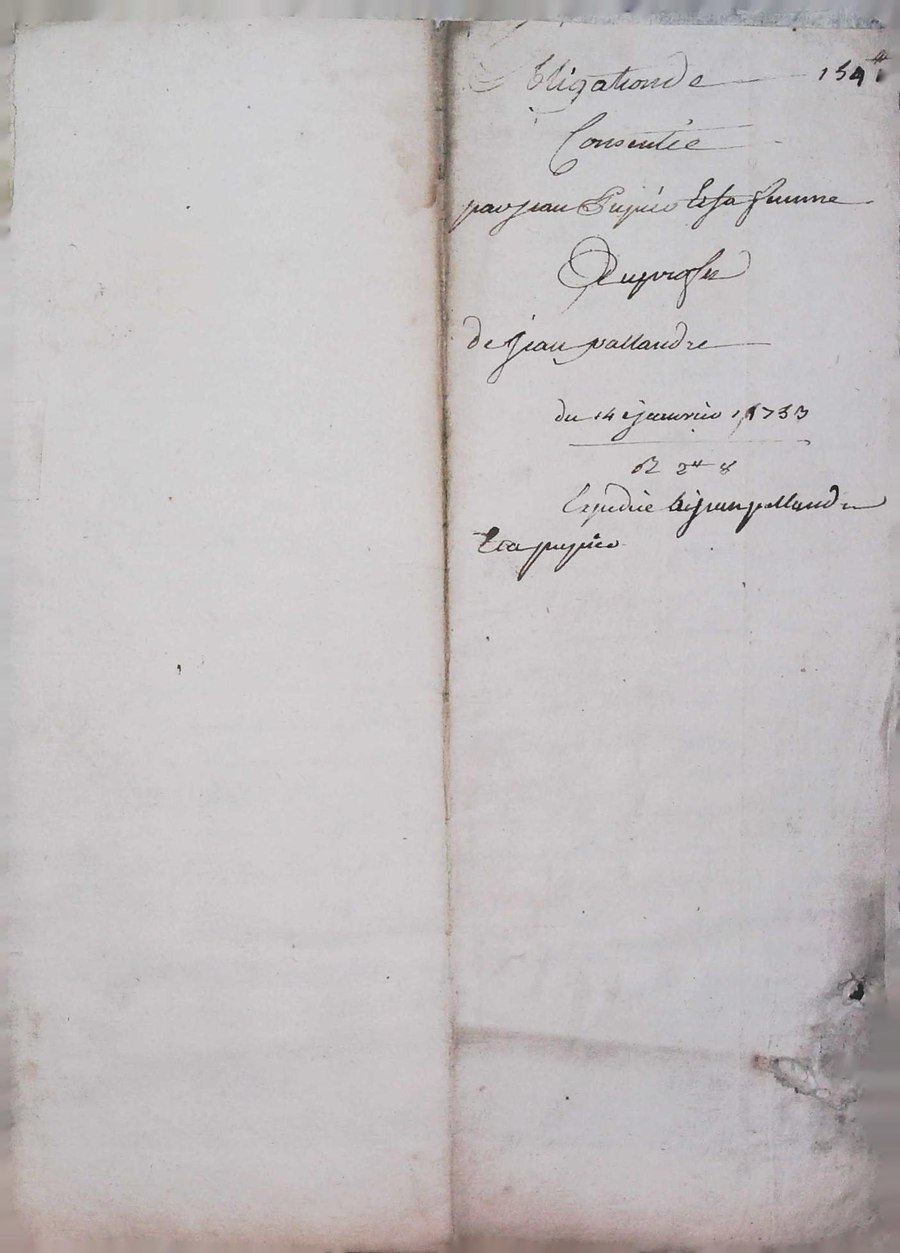 Obligation de 154#
Consentie
par jean Pupier Et sa femme
Au profit
de jean pallandre
du 14e janvier 1733
R 2# 8
Expedié a jean pallandre
Et a pupier